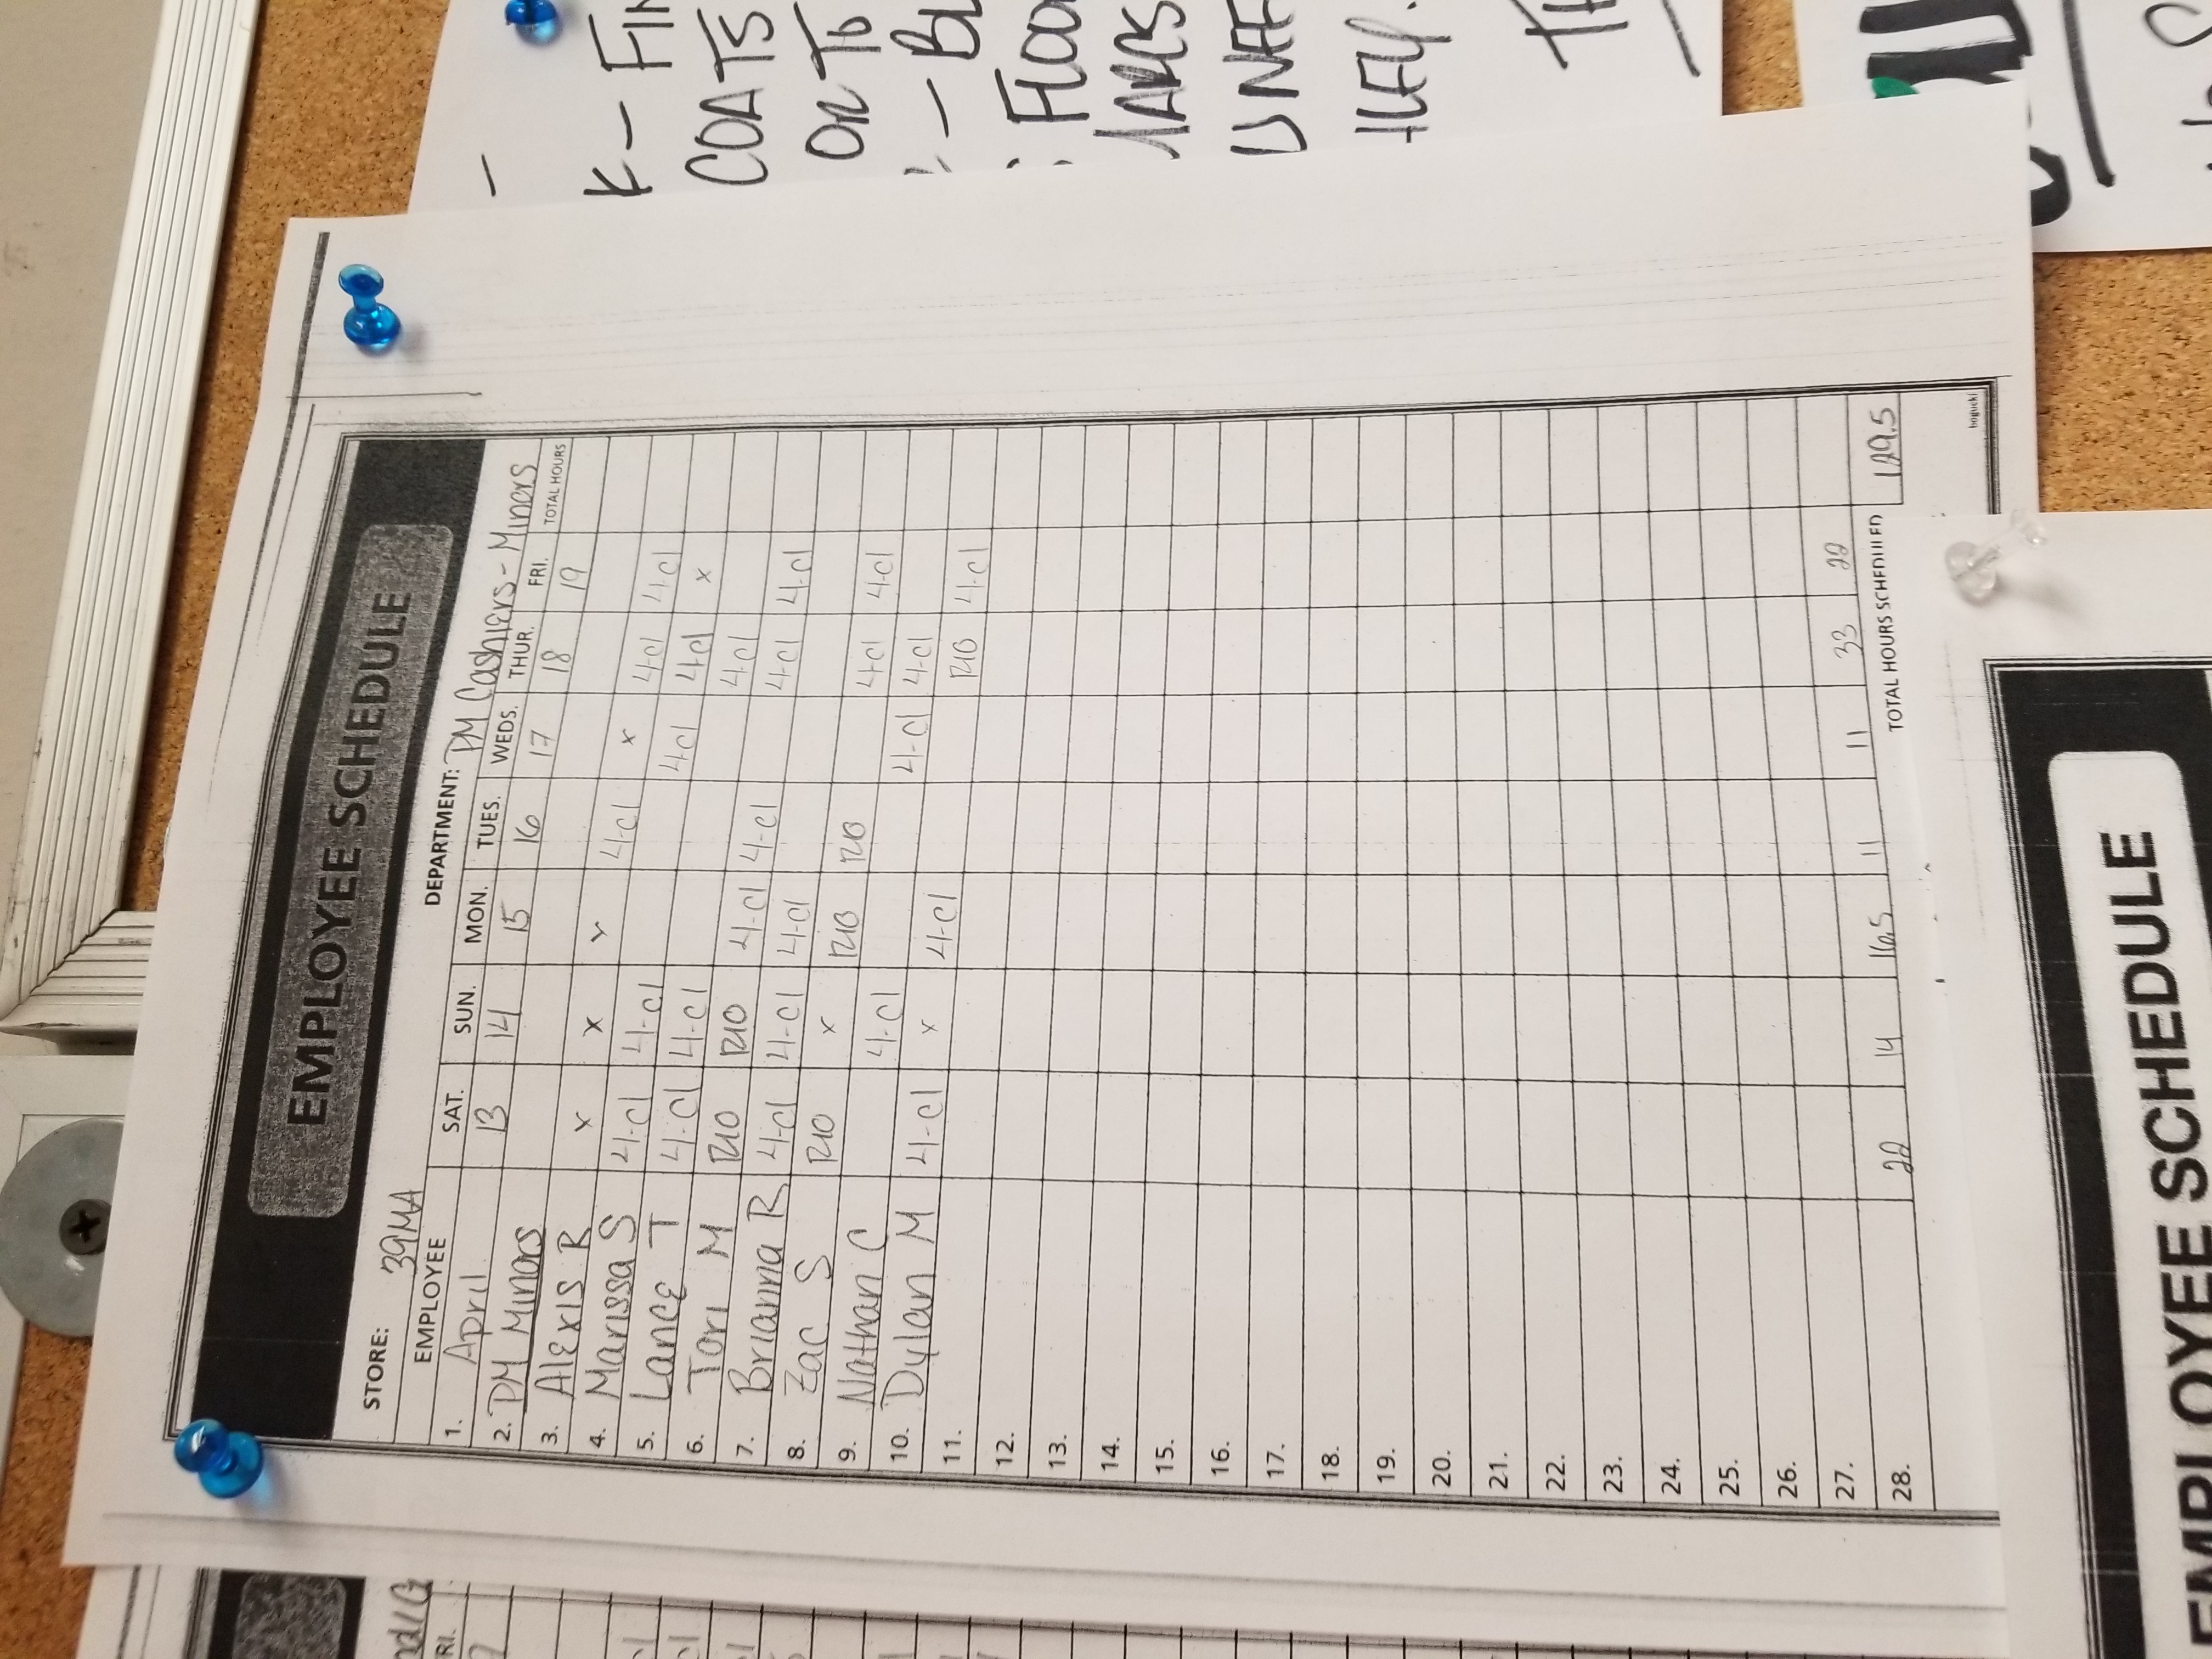 EMPLOYEE SCHEDULE
STORE: 39MA DEPARTMENT: PM Cashiers - Minors
EMPLOYEE SAT. SUN. MON. TUES. WEDS. THUR. FRI. TOTAL HOURS
1. April 13 14 15 16 17 18 19
2. PM Minors
3. Alexis R x x x 4-cl x 4-cl 4-cl
4. Marissa S 4-cl 4-cl 4-cl 4-cl x
5. Lance T 4-cl 4-cl 4-cl
6. Tori M R/O R/O 4-cl 4-cl 4-cl 4-cl
7. Brianna R 4-cl 4-cl 4-cl
8. Zac S R/O x R/O R/O 4-cl 4-cl
9. Nathan C 4-cl 4-cl 4-cl
10. Dylan M 4-cl x 4-cl R/O 4-cl
11.
12.
13.
14.
15.
16.
17.
18.
19.
20.
21.
22.
23.
24.
25.
26.
27.
28. 22 14 16.5 11 11 33 22
TOTAL HOURS SCHEDULED 129.5
EMPLOYEE SCHEDULE
COATS